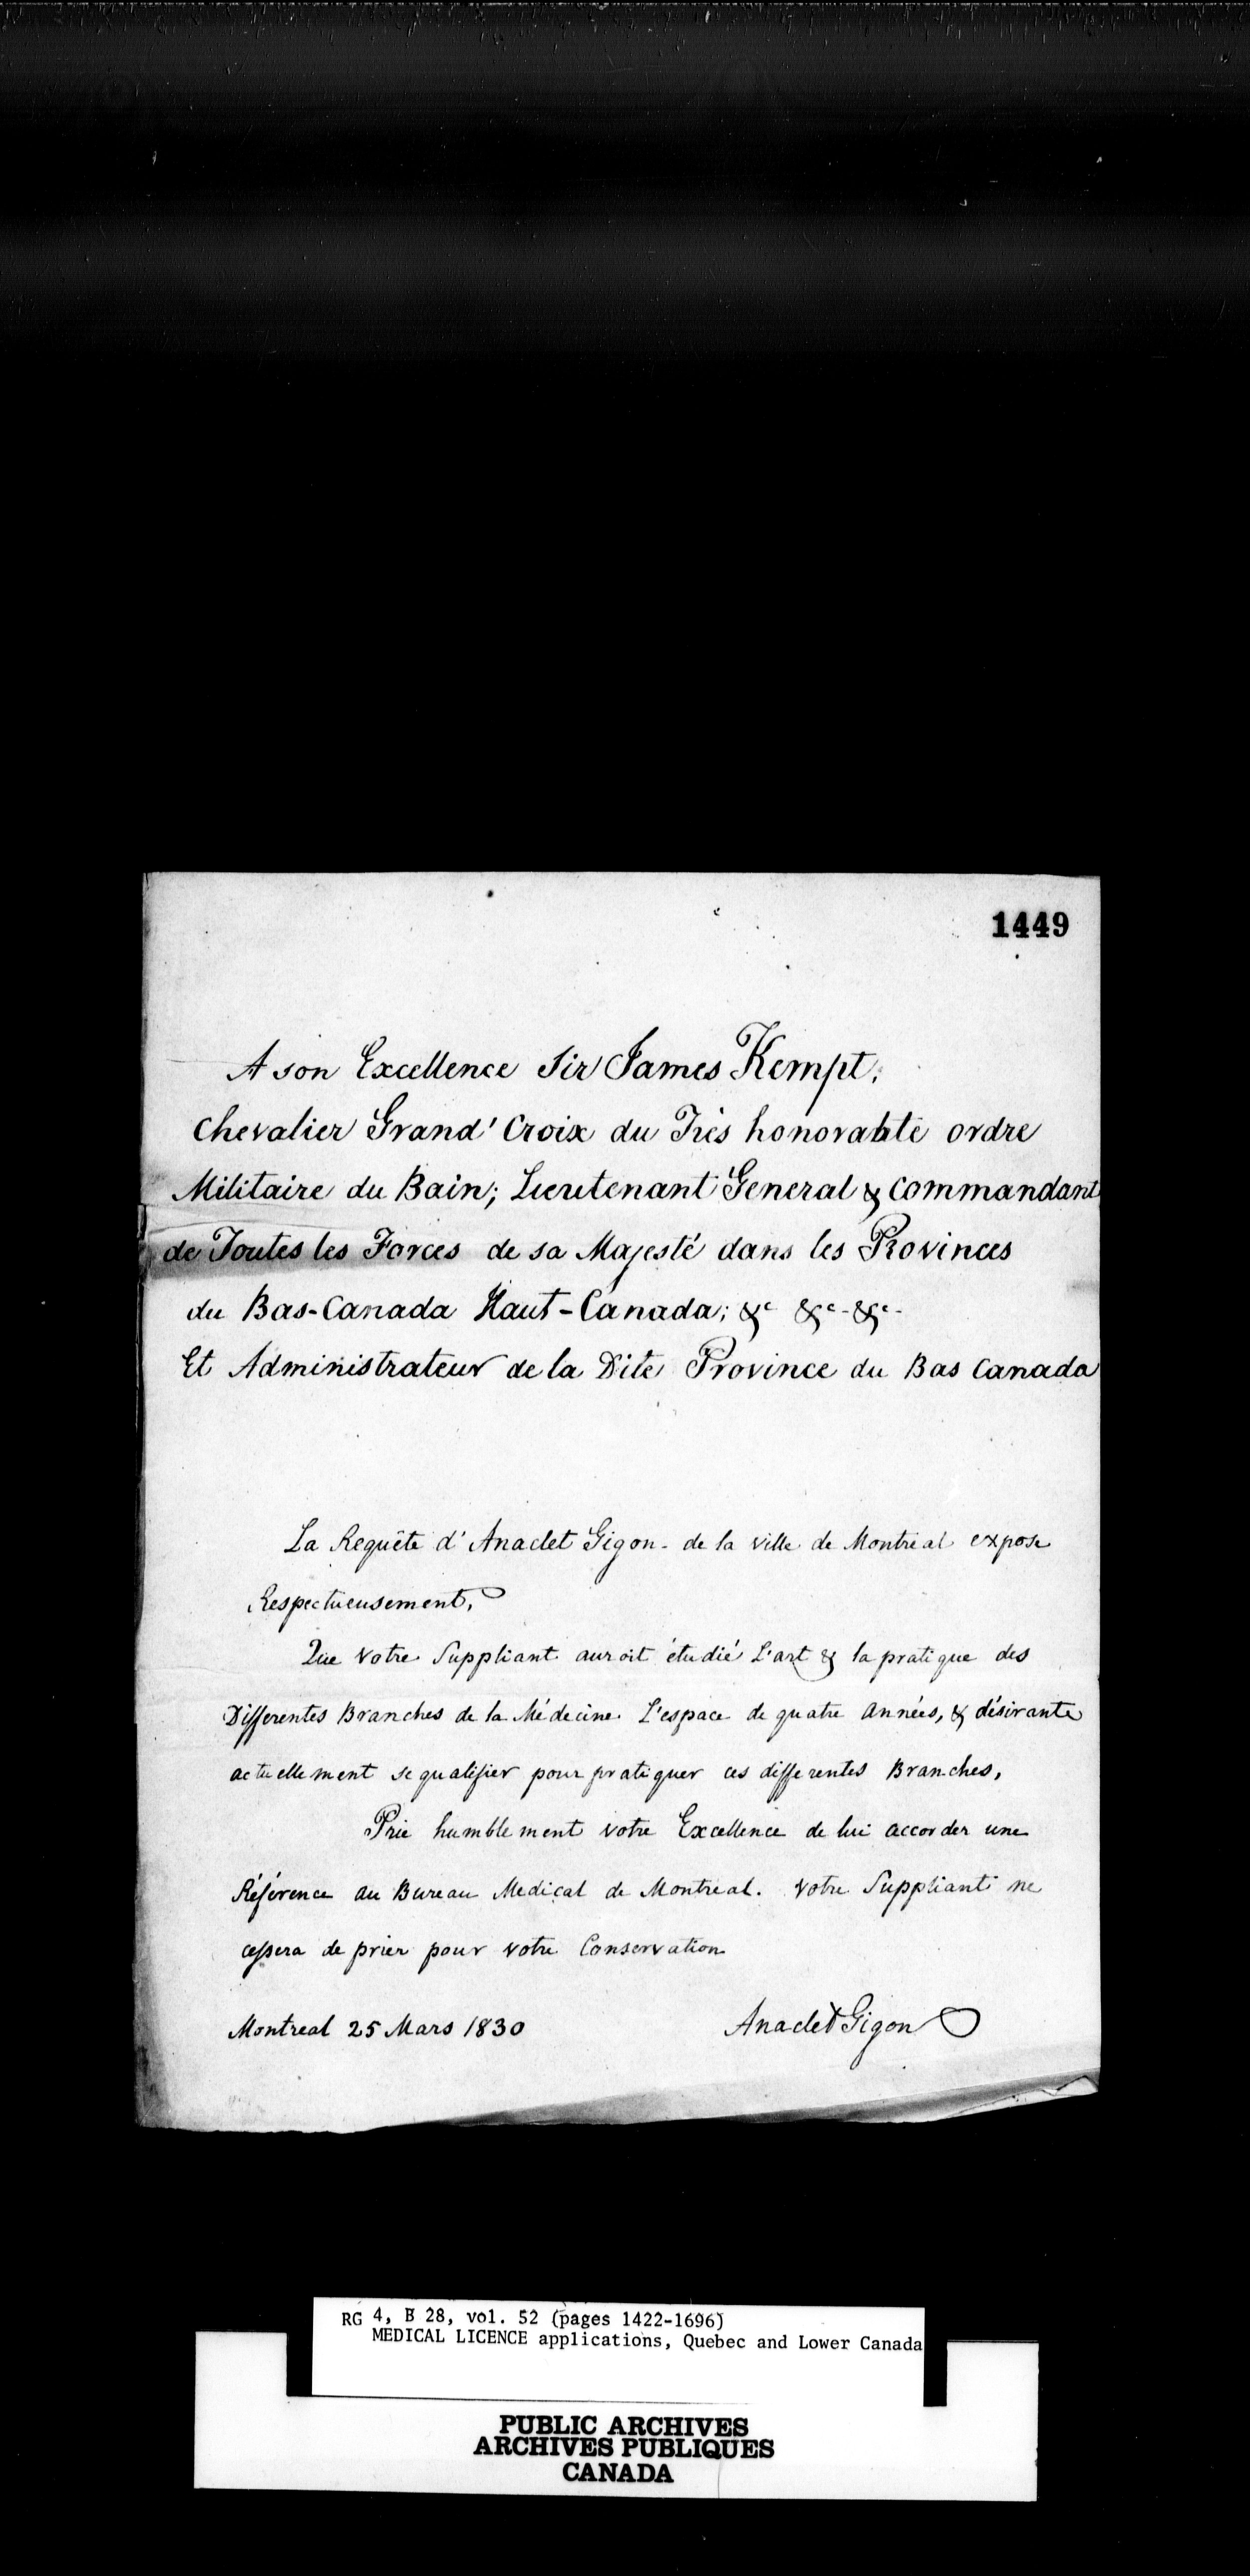 1449
A son Excellence Sir James Kempt,
Chevalier Grand' Croix du Très honorable ordre
Militaire du Bain; Lieutenant General & Commandant
de Toutes les Forces de sa Majesté dans les Provinces
du Bas-Canada Haut-Canada; &c &c - &c -
Et Administrateur de la Dite Province du Bas Canada
La Requête d'Anaclet Gigon - de la ville de Montreal expose
Respectueusement,
Que Votre Suppliant auroit étudié L'art & la pratique des
Differentes Branches de la Médecine L'espace de quatre années, & désirante
actuellement se qualifier pour pratiquer ces differentes Branches,
Prie humblement votre Excellence de lui accorder une
Référence au Bureau Medical de Montreal. Votre Suppliant ne
cessera de prier pour votre Conservation
Montreal 25 Mars 1830 Anaclet Gigon
RG 4, B 28, vol. 52 (pages 1422-1696)
MEDICAL LICENCE applications, Quebec and Lower Canada
PUBLIC ARCHIVES
ARCHIVES PUBLIQUES
CANADA